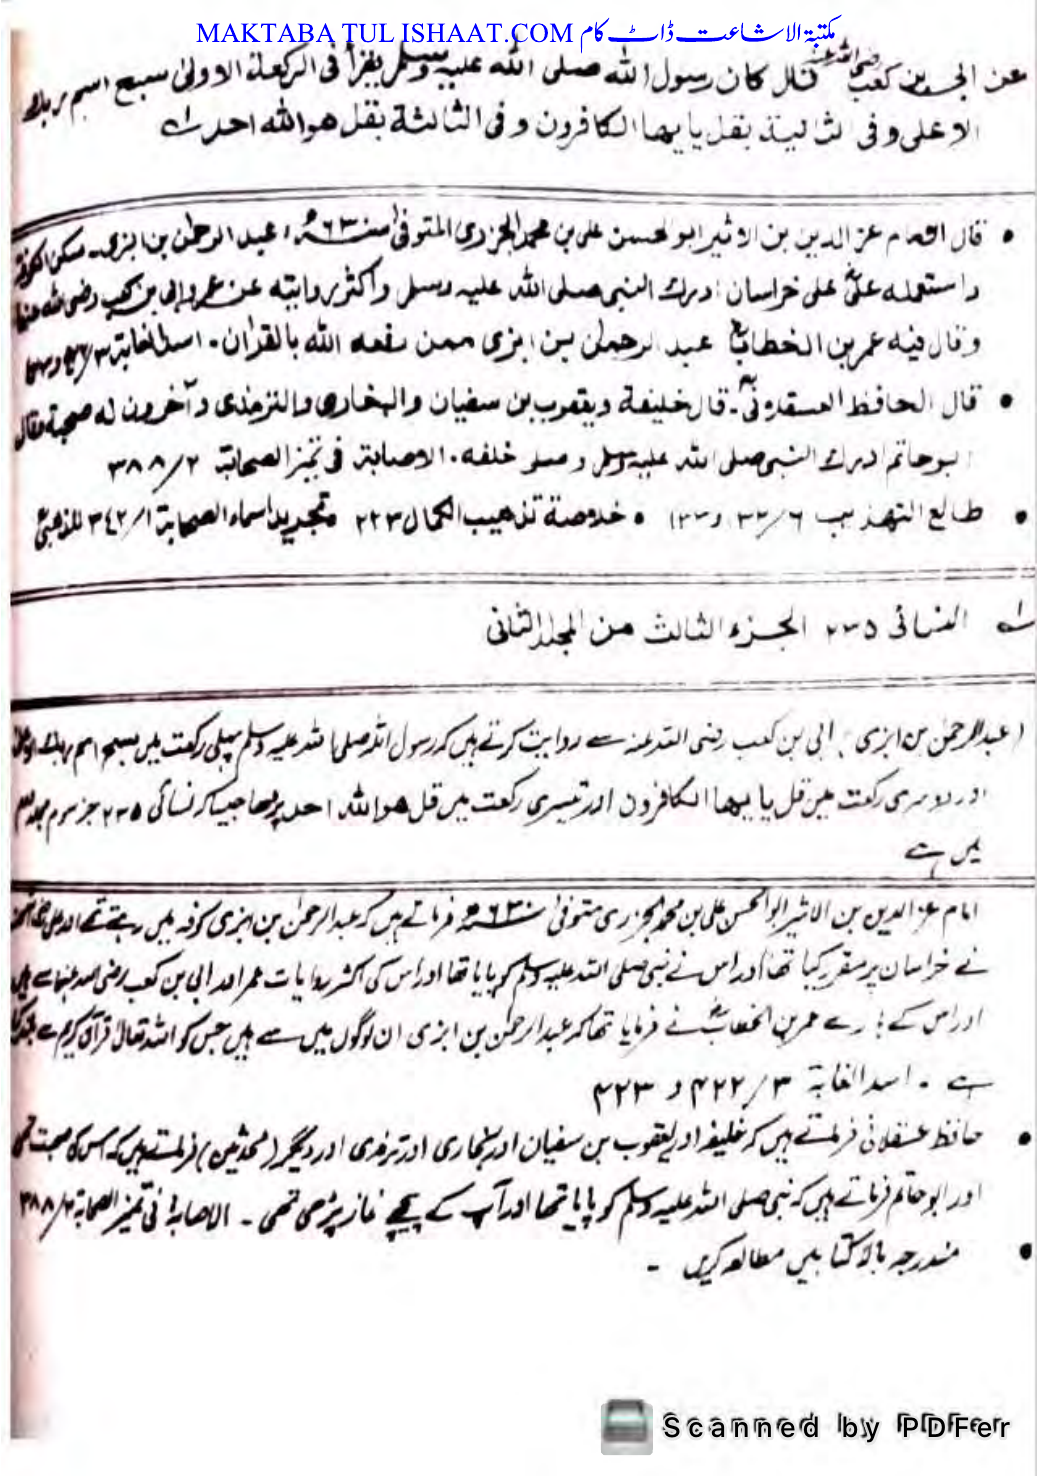 MAKTABA TUL ISHAAT.COM مکتبۃ الاشاعت ڈاٹ کام
عن ابی بن کعب رضی اللہ عنہ قال کان رسول اللہ صلی اللہ علیہ وسلم یقرأ فی الرکعۃ الاولیٰ سبح اسم ربک
الاعلی و فی الثانیۃ بقل یایہا الکافرون و فی الثالثۃ بقل ھو اللہ احد ۱ے
• قال الامام عز الدین بن الاثیر ابو الحسن علی بن محمد الجزری المتوفیٰ سنۃ ٦٣٠ھ عبد الرحمٰن بن ابزی۔ سکن الکوفۃ
واستعملہ علیؓ علی خراسان ادرک النبی صلی اللہ علیہ وسلم و اکثر روایتہ عن عمر و ابی بن کعب رضی اللہ عنہما
وقال فیہ عمر بن الخطابؓ عبد الرحمٰن بن ابزی ممن رفعہ اللہ بالقراٰن۔ اسد الغابۃ
• قال الحافظ العسقلانیؒ۔ قال خلیفۃ و یعقوب بن سفیان والبخاری والترمذی و آخرون لہ صحبۃ وقال
ابو حاتم ادرک النبی صلی اللہ علیہ وسلم و صلی خلفہ۔ الاصابۃ فی تمیز الصحابۃ ۲/۳۸۸
• طالع التہذیب ۶/۱۳۲ و ۱۳۳ • خلاصۃ تذھیب الکمال ۲۲۳ وتجرید اسماء الصحابۃ ۱/۳۴۲ للذھبیؒ
۱ے النسائی ۲۳۵ الجزء الثالث من المجلد الثانی
(عبدالرحمٰن بن ابزی) ابی بن کعب رضی اللہ عنہ سے روایت کرتے ہیں کہ رسول اللہ صلی اللہ علیہ وسلم پہلی رکعت میں سبح اسم ربک الاعلیٰ
اور دوسری رکعت میں قل یا یہا الکافرون اور تیسری رکعت میں قل ھو اللہ احد پڑھا جیسا کہ نسائی ۲۳۵ جز سوم جلد دوم
میں ہے
امام عز الدین بن الاثیر ابو الحسن علی بن محمد الجزری متوفیٰ ٦٣٠ھ فرماتے ہیں کہ عبدالرحمٰن بن ابزی کوفہ میں رہتے تھے اور علی
نے خراسان پر مقرر کیا تھا اور اس نے نبی صلی اللہ علیہ وسلم کو پایا تھا اور اس کی اکثر روایات عمر اور ابی بن کعب رضی اللہ عنہما سے ہیں
اور اس کے بارے عمر بن الخطابؓ نے فرمایا تھا کہ عبدالرحمٰن بن ابزی ان لوگوں میں سے ہیں جس کو اللہ تعالیٰ قرآن کریم سے بلند کیا
ہے ۔ اسد الغابۃ ۳/۴۲۲ و ۴۲۳
• حافظ عسقلانی فرماتے ہیں کہ خلیفہ اور یعقوب بن سفیان اور بخاری اور ترمذی اور دیگر (محدثین) فرماتے ہیں کہ اس کا صحبت تھی
اور ابو حاتم فرماتے ہیں کہ نبی صلی اللہ علیہ وسلم کو پایا تھا اور آپ کے پیچھے نماز پڑھی تھی ۔ الاصابۃ فی تمیز الصحابۃ ۲/۳۸۸
• مندرجہ بالا کتابیں مطالعہ کریں ۔
Scanned by PDFer